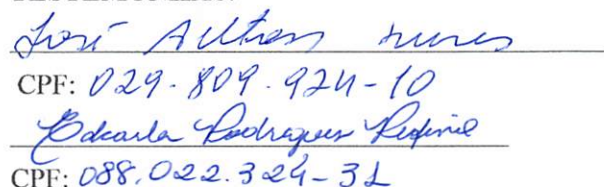 José Ailton nunes
CPF: 029.809.924-10
Edcarla Rodrigues
CPF: 088.022.324-31